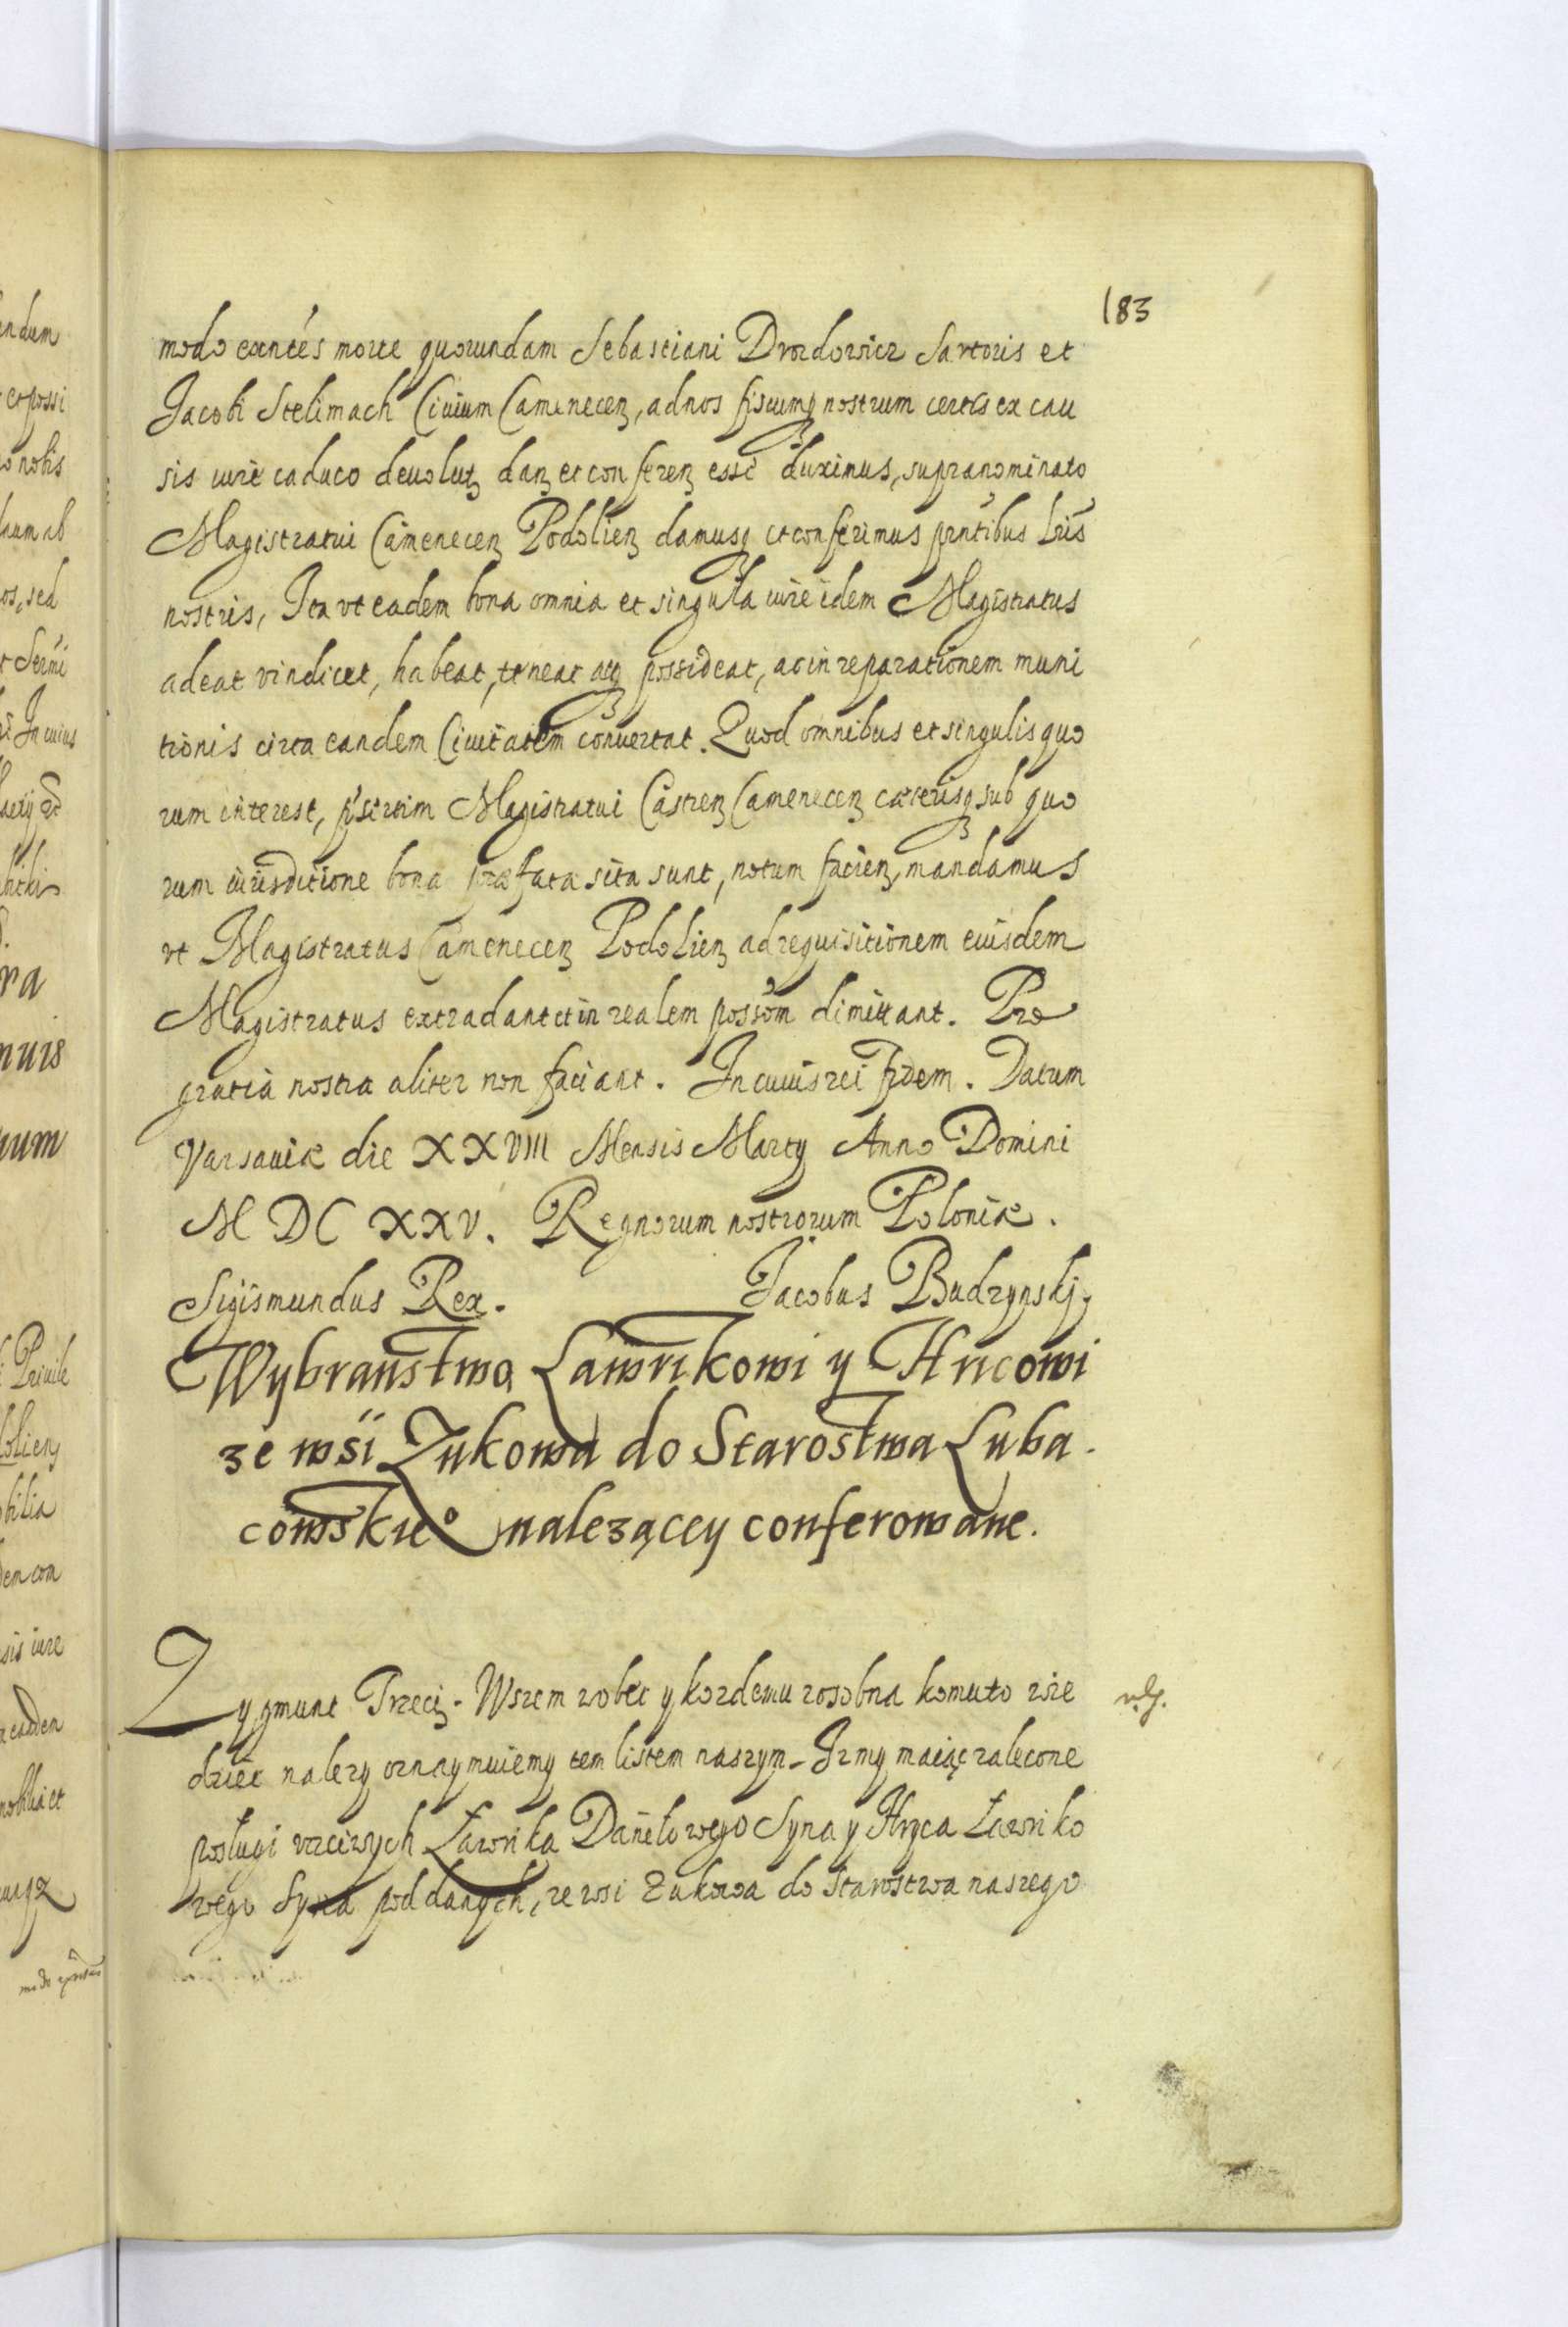 183
modo exntes morte quorundam Sebastiani Drozdowicz Sartoris et
Jacobi Stelimach Ciuium Camenecen, ad nos fiscumq nostrum certis ex cau
sis iure caduco deuolut dan et conferen esse duximus, supranominato
Magistratui Camenecen Podolien damusq et conferimus pntibus lris
nostris, Ita vt eadem bona omnia et singula iure idem Magistratus
adeat vindicet, habeat, teneat atq possideat, ac in reparationem muni
tionis circa eandem Ciuitatem conuertat. Quod omnibus et singulis quo
rum interest, psertim Magistratui Castren Camenecen cæterisq sub quo
rum iurisditione bona præfata sita sunt, notum facien, mandamus
vt Magistratus Camenecen Podolien ad requisitionem eiusdem
Magistratus extradant et in realem possom dimittant. Pro
gratia nostra aliter non faciant. In cuius rei fidem. Datum
Varsauiæ die XXVIII Mensis Marty Anno Domini
M DC XXV. Regnorum nostrorum Poloniæ.
Sigismundus Rex. Jacobus Budzynskj
Wybraństwa Ławrikowi y Hricowi
ze wsi Zukowa do Starostwa Luba
cowskieo nalezącey conferowane.
Zygmunt Trzeci. Wszem wobec y kozdemu zosobna komuto wie
dziec nalezy oznaymuiemy tem listem naszym. Iz my maiąc zalecone
posługi vczciwych Ławrika Daniełowego Syna y Hryca Ławriko
wego Syna poddanych, ze wsi Zukowa do starostwa naszego